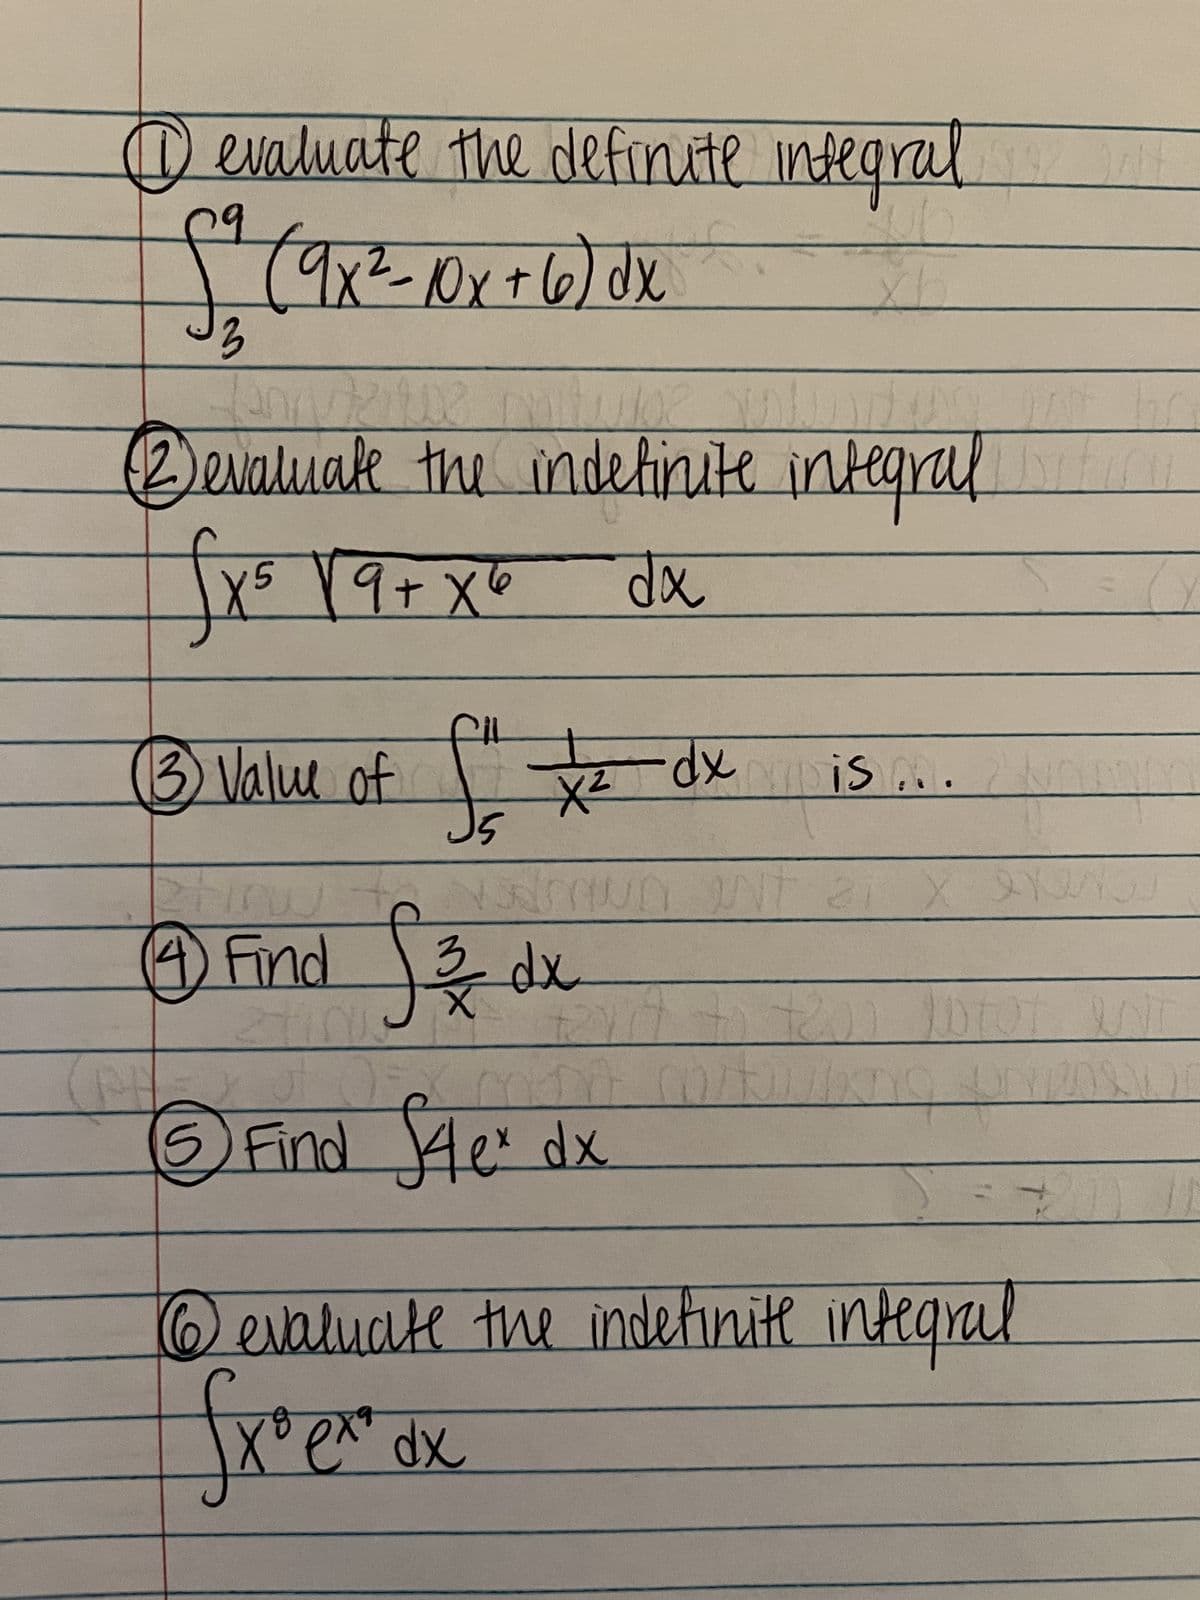 ① evaluate the definite integral
∫₃⁹ (9x²-10x+6) dx
② evaluate the indefinite integral
∫x⁵ √(9+x⁶) dx
③ Value of ∫₅¹¹ 1/x² dx is...
④ Find ∫3/x dx
⑤ Find ∫4eˣ dx
⑥ evaluate the indefinite integral
∫x⁸ e^x⁹ dx